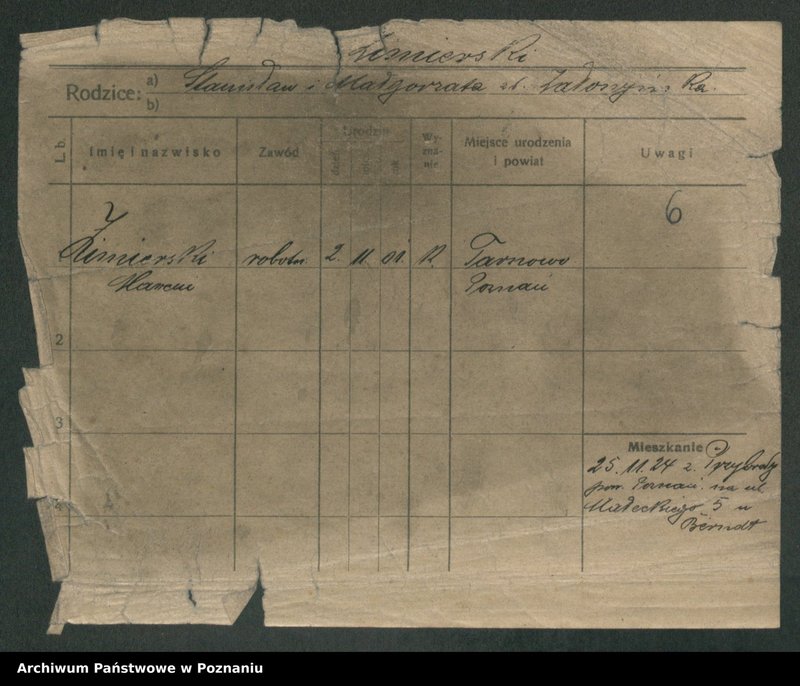 Zimierski
Rodzice: a) Stanisław i Małgorzata
b)
L. b.
Imię i nazwisko
Zawód
Urodzin
dzień
rok
Wy-
zna-
nie
Miejsce urodzenia
i powiat
Uwagi
6
Zimierski robotn. 2. 11. 01. k. Tarnowo
Marcin Poznań
2
3
4
Mieszkanie
25. 11. 24 z Przybrody
pow. Poznań na ul.
Małeckiego 5 u
Berndt
Archiwum Państwowe w Poznaniu